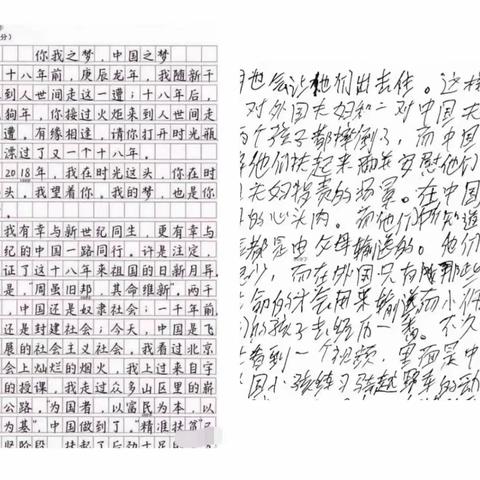 分）
你我之梦，中国之梦
十八年前，庚辰龙年，我随新千
到人世间走这一遭；十八年后，
狗年，你接过火炬来到人世间走
遭。有缘相逢，请你打开时光瓶
漂过了又一个十八年。
2018年，我在时光这头，你在时
头，我望着你。我的梦，也是你
。
我有幸与新世纪同生，更有幸与
纪的中国一路同行。许是注定，
证了这十八年来祖国的日新月异。
是“周虽旧邦，其命维新”，两千
，中国还是奴隶社会；一千年前，
还是封建社会；今天，中国是飞
展的社会主义社会，我看过北京
会上灿烂的烟火，我上过来自宇
的授课，我走过众多山区里的崭
公路，“为国者，以富民为本，以
为基”，中国做到了“精准扶贫”
坚阶段，扶起了后劲十足的
也会让他们出去住。这样
对外国夫妇和一对中国夫
个孩子都摔倒了，而中国
他们扶起来而并安慰他们
夫妇投责的场景。在中国
的心头肉。而他们所知道
都是由父母输送的。他们
少，而在外国只有那些
命的才会用来输送而小
的孩子去经历一番。不久
看到一个视频，里面是中
国小孩练习骑越野车的动